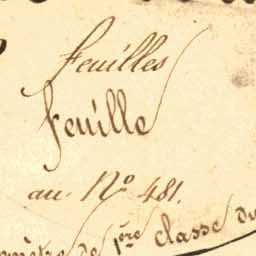 feuilles
feuille
au N° 481.
de 1ère classe du